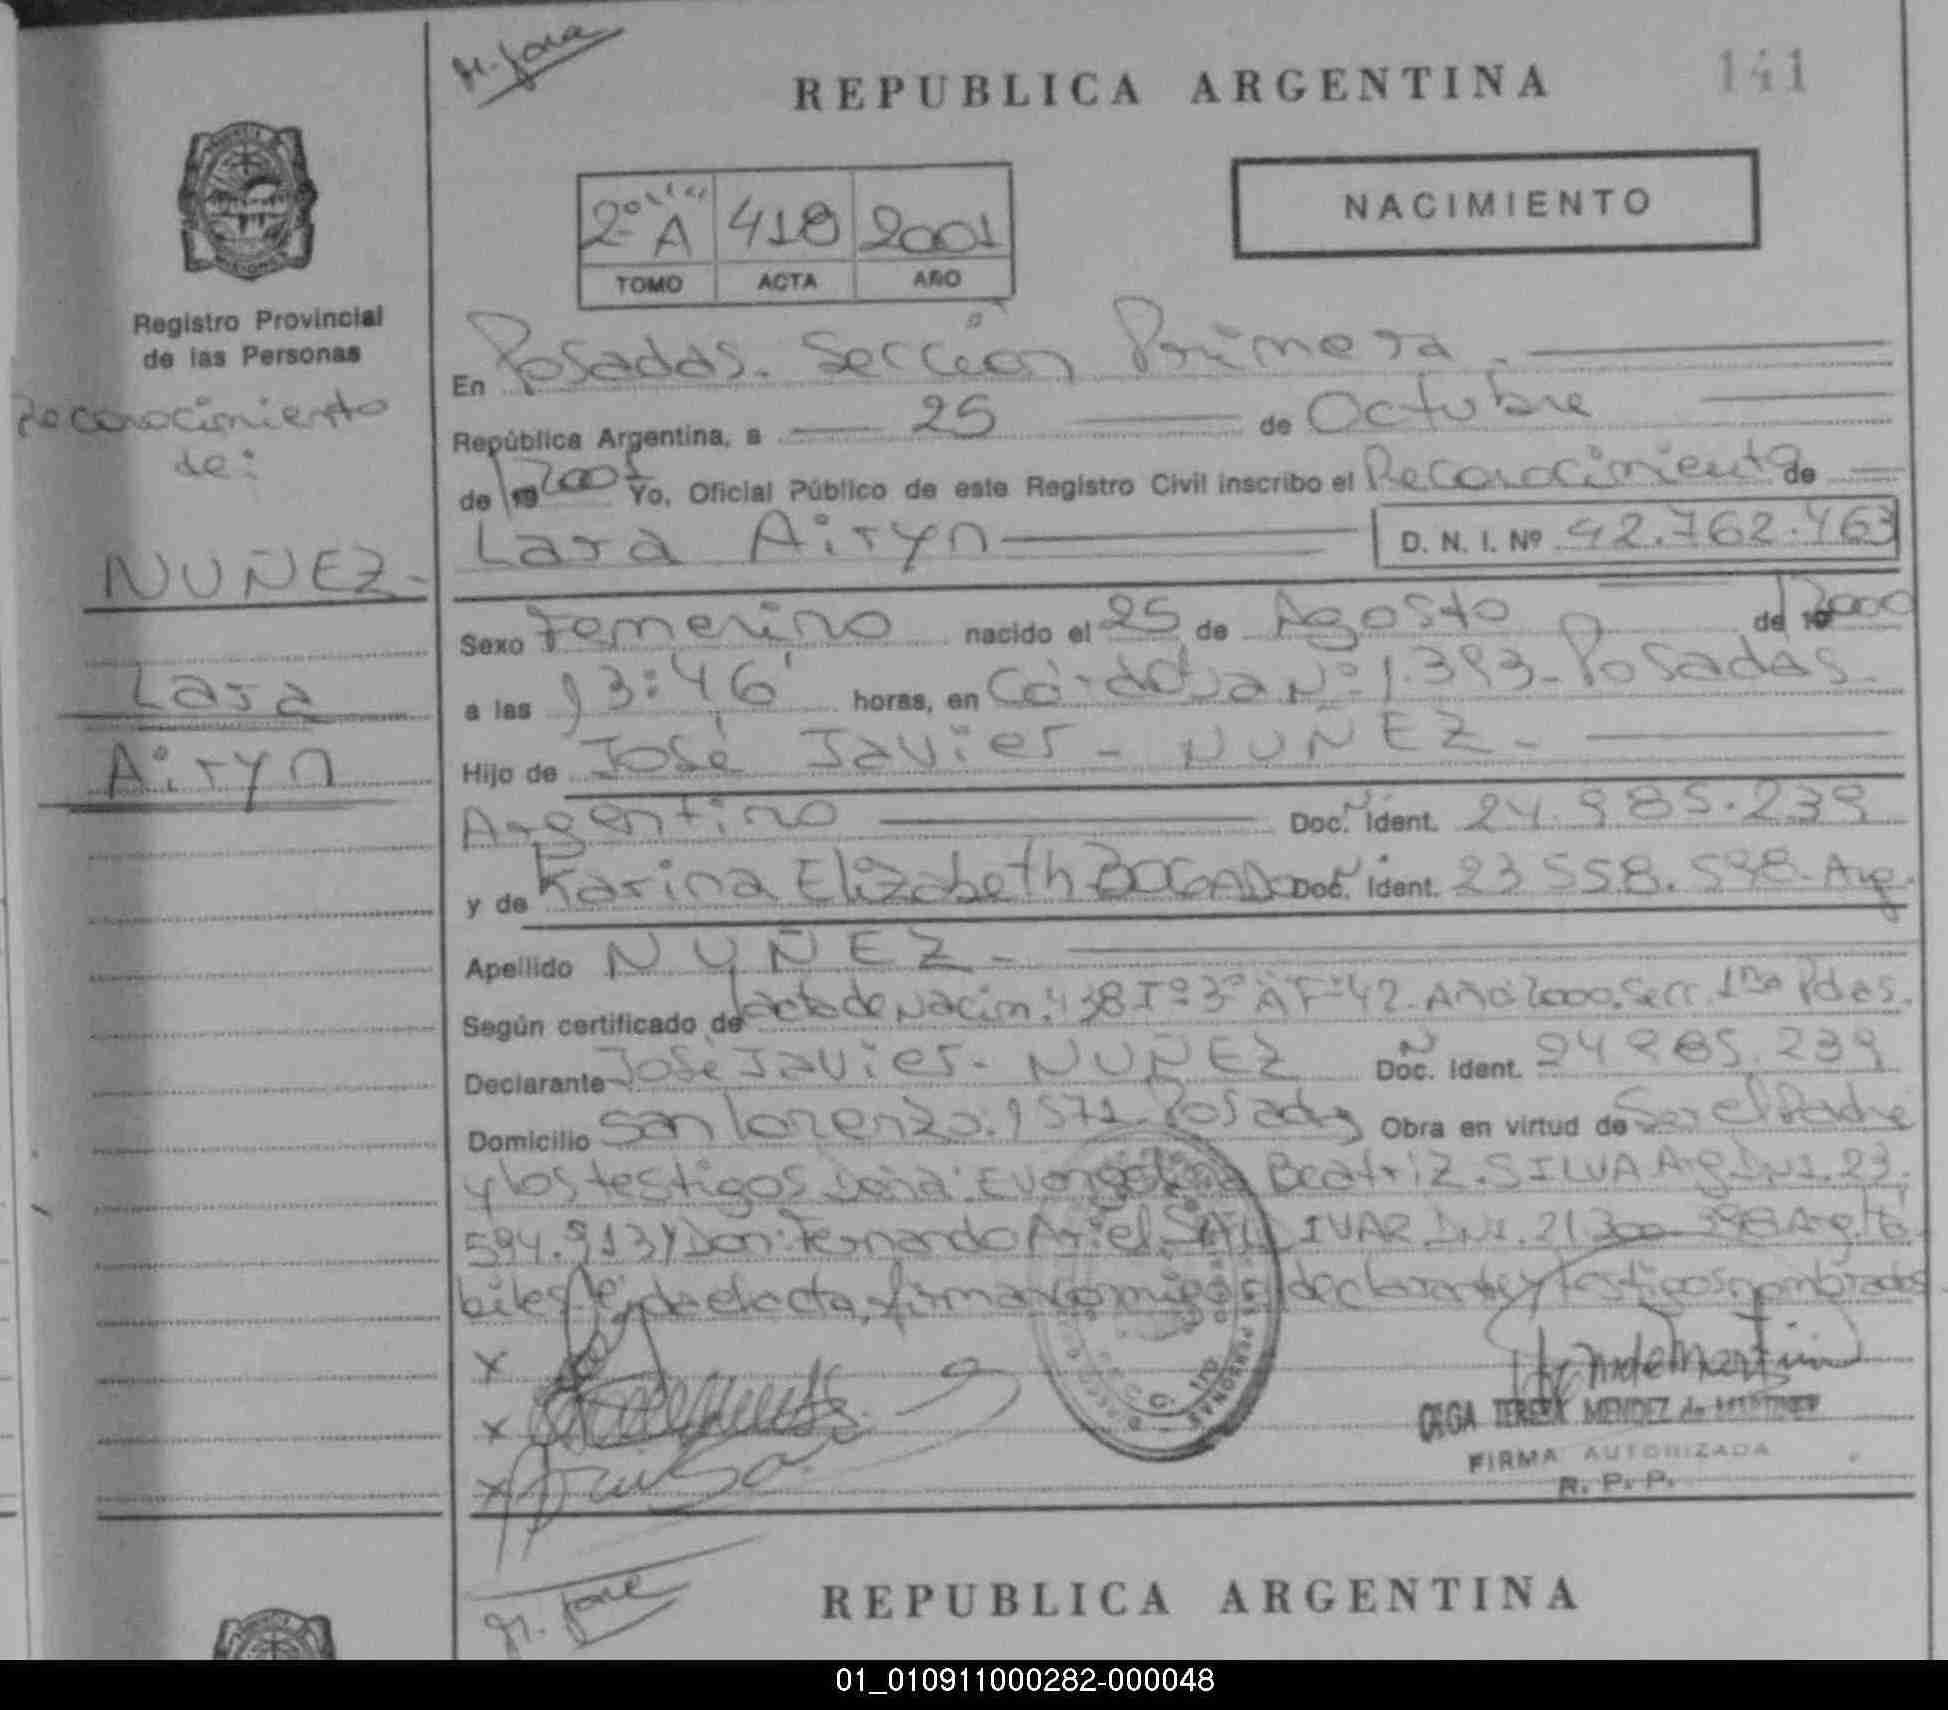 M. Jose
REPUBLICA ARGENTINA
141
2º A 418 2001
TOMO ACTA AÑO
NACIMIENTO
Registro Provincial
de las Personas
Reconocimiento
de:
NUÑEZ-
Lara
Airyn
En Posadas. Sección Primera.
República Argentina, a 25 de Octubre
de 19 2001 Yo, Oficial Público de este Registro Civil inscribo el Reconocimiento de
Lara Airyn D. N. I. Nº 42.762.463
Sexo Femenino nacido el 25 de Agosto de 19 2000
a las 13:46' horas, en Córdoba Nº 1.393- Posadas.
Hijo de José Javier - NUÑEZ -
Argentino Doc. N Ident. 24.985.239
y de Karina Elizabeth BOGADO Doc. N Ident. 23.558.598- Arg.
Apellido NUÑEZ -
Según certificado de acta de Nacim: 438 Tº 3º A Fº 42- Año 2000. Secc. 1ra Pdas.
Declarante José Javier - NUÑEZ Doc. N Ident. 24.985.239
Domicilio San Lorenzo: 1571- Posadas Obra en virtud de Ser el Padre
y los testigos Doña: Evangelina Beatriz. SILVA Arg. DNI. 23.
594.913 y Don: Fernando Ariel. DNI. 21.300 398 Arg. Há
biles leída el acta, firman conmigo el declarante y testigos nombrados
x
x
x
OLGA TERESA MENDEZ de MARTINEZ
FIRMA AUTORIZADA
R. P. P.
M. Jose
REPUBLICA ARGENTINA
01_010911000282-000048